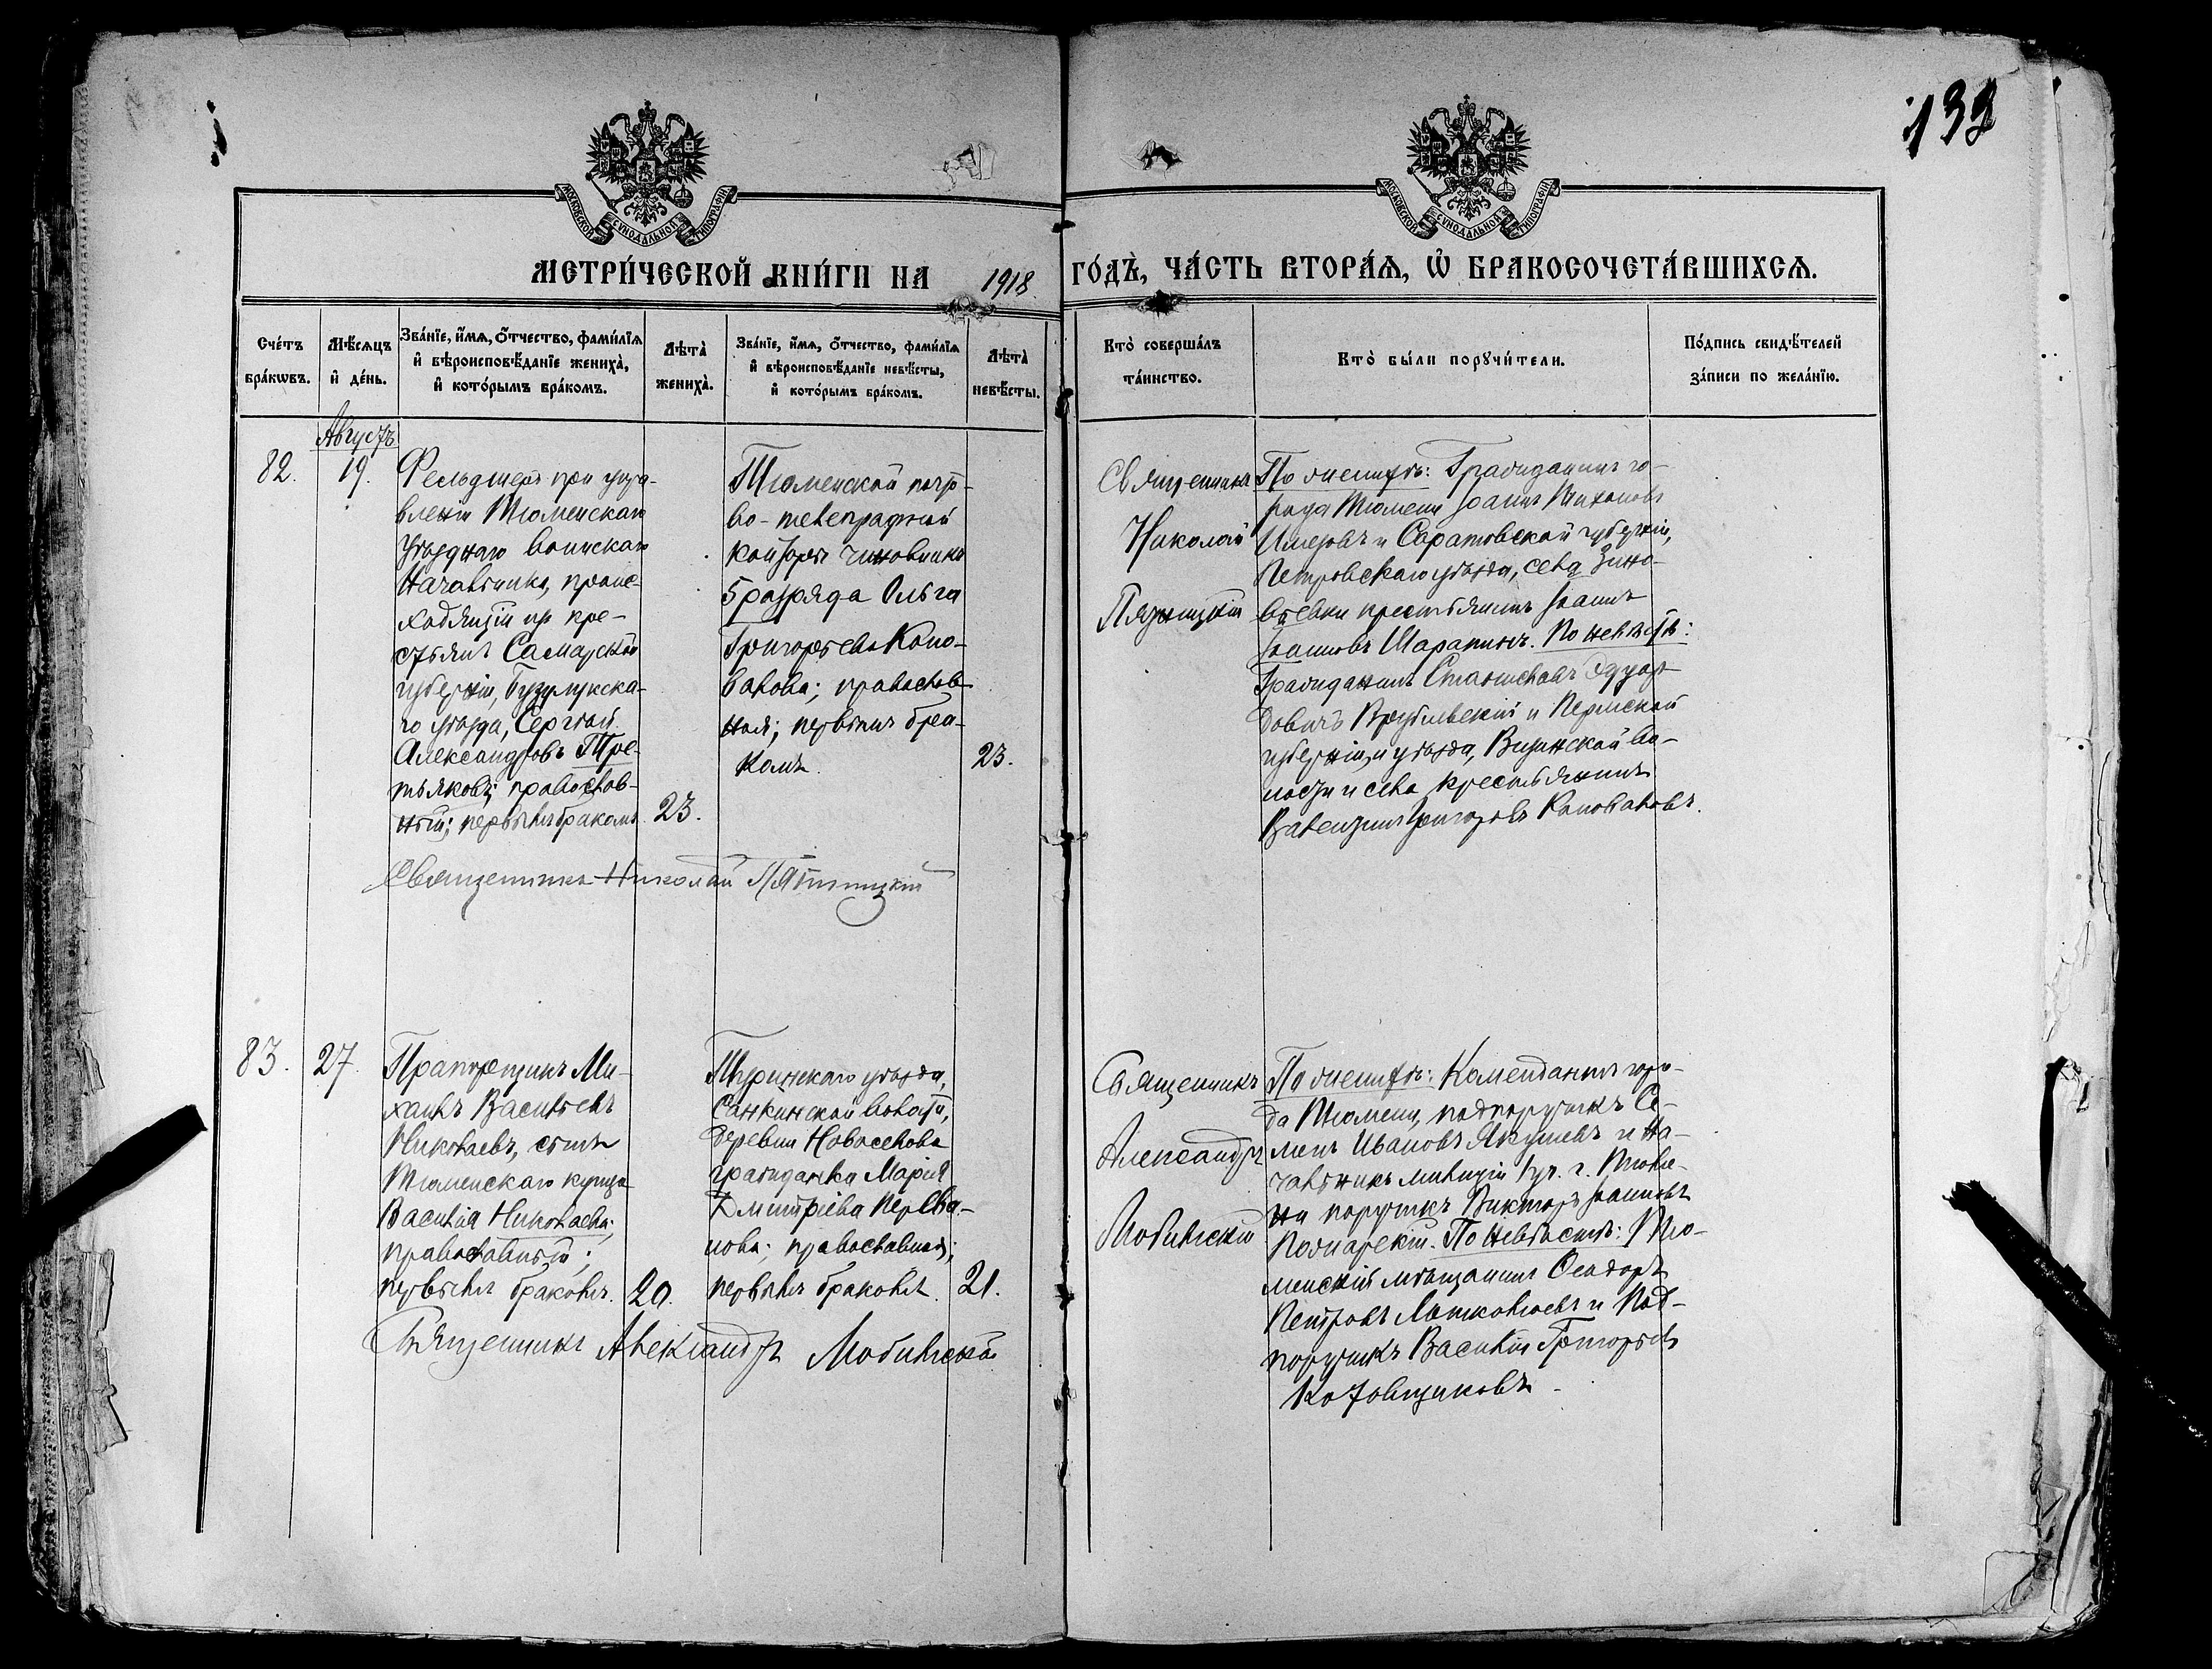 139
МОСКОВСКОЙ СѴНОДАЛЬНОЙ ТИПОГРАФІИ
МОСКОВСКОЙ СѴНОДАЛЬНОЙ ТИПОГРАФІИ
МЕТРИ́ЧЕСКОЙ КНИ́ГИ НА 1918 ГО́ДЪ, ЧА́СТЬ ВТОРА́Ѧ, Ѡ҆ БРАКОСОЧЕТА́ВШИХСѦ.
Сче́тъ бра́кѡвъ.
Мѣ́сяцъ и҆ де́нь.
Зва́нїе, и҆́мѧ, Ѻ҆́тчество, фами́лїѧ
и҆ вѣроисповѣ́данїе жениха̀,
и҆ кото́рымъ бра́комъ.
Лѣта̀ жениха̀.
Зва́нїе, и҆́мѧ, Ѻ҆́тчество, фами́лїѧ
и҆ вѣроисповѣ́данїе невѣ́сты,
и҆ кото́рымъ бра́комъ.
Лѣта̀ невѣ́сты.
Кто̀ соверша́лъ
та́инство.
Кто̀ бы́ли порꙋчи́тели.
По́дпись свидѣ́телей
за́писи по жела́нїю.
Августъ
82.
19.
Фельдшеръ при упра-
вленіи Тюменскаго
Уѣзднаго Воинскаго
Начальника, проис-
ходящій из кре-
стьянъ Самарской
губерніи, Бузулукска-
го уѣзда, Сергѣй
Александровъ Тре-
тьяковъ; православ-
ный; первымъ бракомъ.
23.
Тюменской почто-
во-телеграфной
конторы чиновникъ
5 разряда Ольга
Григорьева Коно-
валова; православ-
ная; первымъ бра-
комъ.
23.
Священникъ
Николай
Пятницкій
По женихѣ: Гражданинъ го-
рода Тюмени Іоаннъ
и Саратовской губерніи,
Петровскаго уѣзда, села Зино-
вьевки крестьянинъ Іоаннъ
Іоанновъ Шарапинъ. По невѣстѣ:
Гражданинъ Станиславъ Эдуар-
довичъ Врублевскій и Пермской
губерніи, и уѣзда, Висимской во-
лости и села крестьянинъ
Валентинъ Григоровъ Коноваловъ.
Священникъ Николай Пятницкій
83.
27.
Прапорщикъ Ми-
хаилъ Васильевъ
Николаевъ, сынъ
Тюменскаго купца
Василія Николаева;
православный;
первымъ бракомъ.
20.
Туринскаго уѣзда,
Санкинской волости,
деревни Новоселова
гражданка Марія
Димитріева Перева-
лова; православная;
первымъ бракомъ.
21.
Священникъ
Александръ
По женихѣ: Комендантъ горо-
да Тюмени, подпоручикъ Се-
менъ Ивановъ Якушевъ и На-
чальникъ милиціи гр. г. Тюме-
ни поручикъ Викторъ Іоанновъ
По невѣстѣ: Тю-
менскій мѣщанинъ Ѳеодоръ
Петровъ и Под-
поручикъ Василій Григорьевъ
Котовщиковъ.
Священникъ Александръ